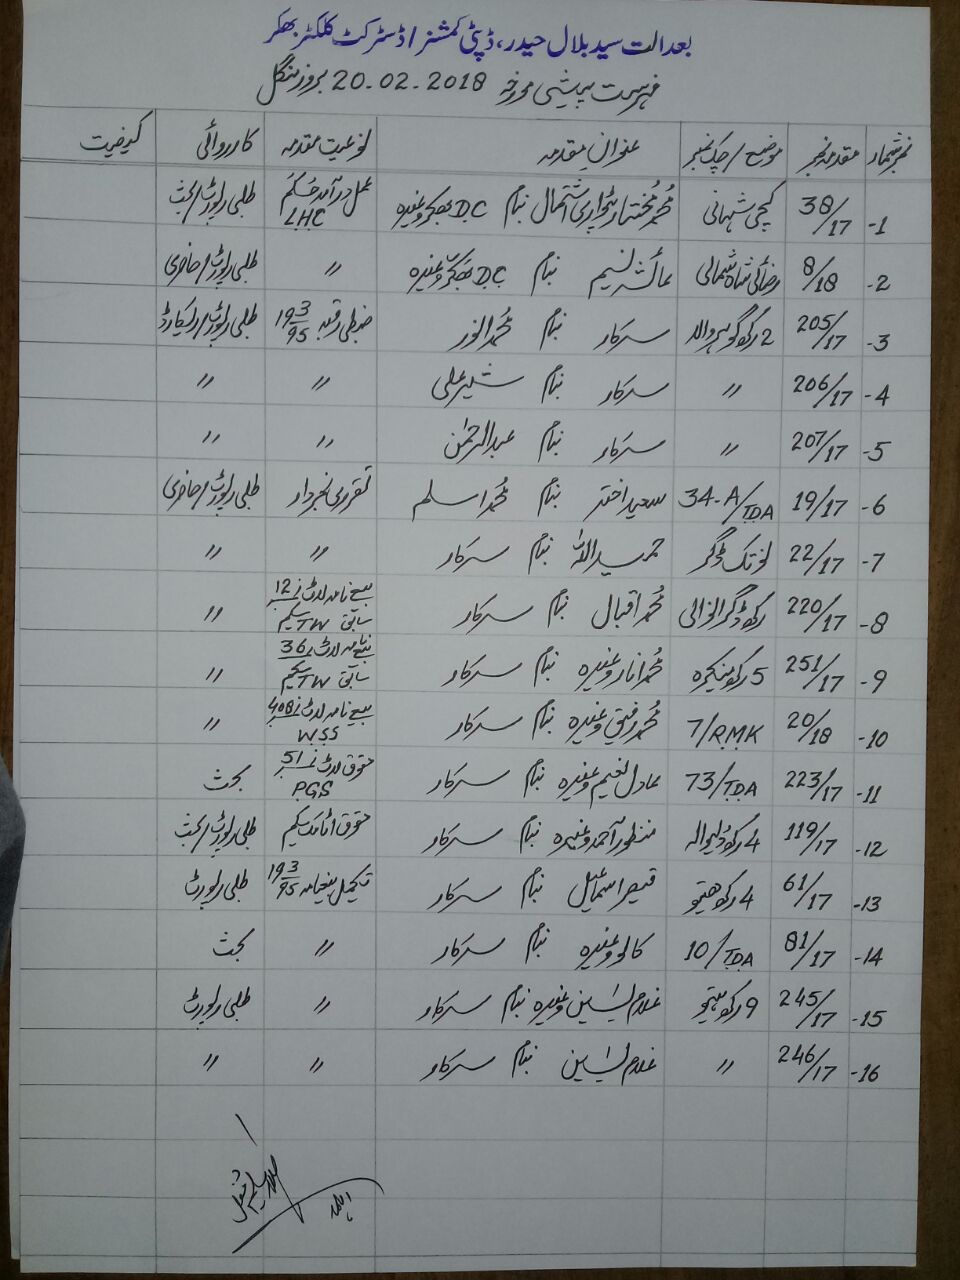 بعدالت سید بلال حیدر، ڈپٹی کمشنر / ڈسٹرکٹ کلکٹر بھکر
فہرست پیشی مورخہ 20.02.2018 بروز منگل
نمبر شمار مقدمہ نمبر موضع / چک نمبر عنوان مقدمہ نوعیت مقدمہ کارروائی کیفیت
1- 38/17 کچی شہانی محمد مختار پٹواری اشتمال بنام DC بھکر وغیرہ عمل درآمد حکم LHC طلبی رپورٹ / بحث
2- 8/18 رضائی شاہ شمالی عائشہ نسیم بنام DC بھکر وغیرہ 〃 طلبی رپورٹ / حاضری
3- 205/17 2 رکھ گوہر والہ سرکار بنام محمد انور ضبطی رقبہ 193/95 طلبی رپورٹ / ریکارڈ
4- 206/17 〃 سرکار بنام شیر علی 〃 〃
5- 207/17 〃 سرکار بنام عبدالرحمٰن 〃 〃
6- 19/17 34-A/TDA سعید اختر بنام محمد اسلم تقرری نمبردار طلبی رپورٹ / حاضری
7- 22/17 نوتک ڈگر حمید اللہ بنام سرکار 〃 〃
8- 220/17 رکھ ڈگر بنام سرکار محمد اقبال بیع نامہ لاٹ نمبر 12 سابق TW سکیم 〃
9- 251/17 5 رکھ محمد وغیرہ بنام سرکار بیع نامہ لاٹ 36 سابق TW سکیم 〃
10- 20/18 7/RMK محمد رفیق وغیرہ بنام سرکار بیع نامہ لاٹ نمبر 408 WSS 〃
11- 223/17 73/TDA عادل نعیم وغیرہ بنام سرکار حقوق لاٹ نمبر 51 PGS بحث
12- 119/17 4 رکھ منظور احمد وغیرہ بنام سرکار حقوق سکیم طلبی رپورٹ / بحث
13- 61/17 4 رکھ قیصر اسماعیل بنام سرکار تکمیل بیعنامہ 193/95 طلبی رپورٹ
14- 81/17 10/TDA کالو وغیرہ بنام سرکار 〃 بحث
15- 245/17 9 رکھ غلام یٰسین وغیرہ بنام سرکار 〃 طلبی رپورٹ
16- 246/17 〃 غلام یٰسین بنام سرکار 〃 〃
اہلمد